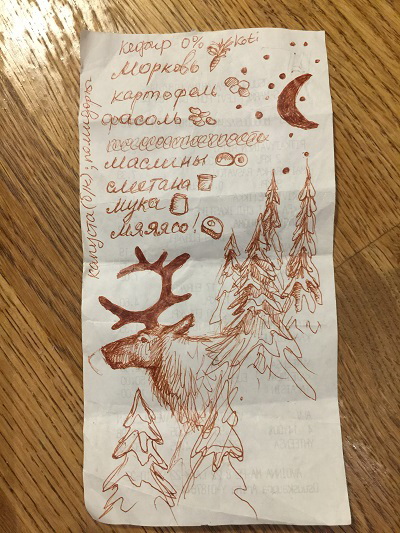 Кефир 0% Koti
Морковь
картофель
фасоль
маслины
сметана
мука
мяяясо!
капуста (Ü/К); помидоры